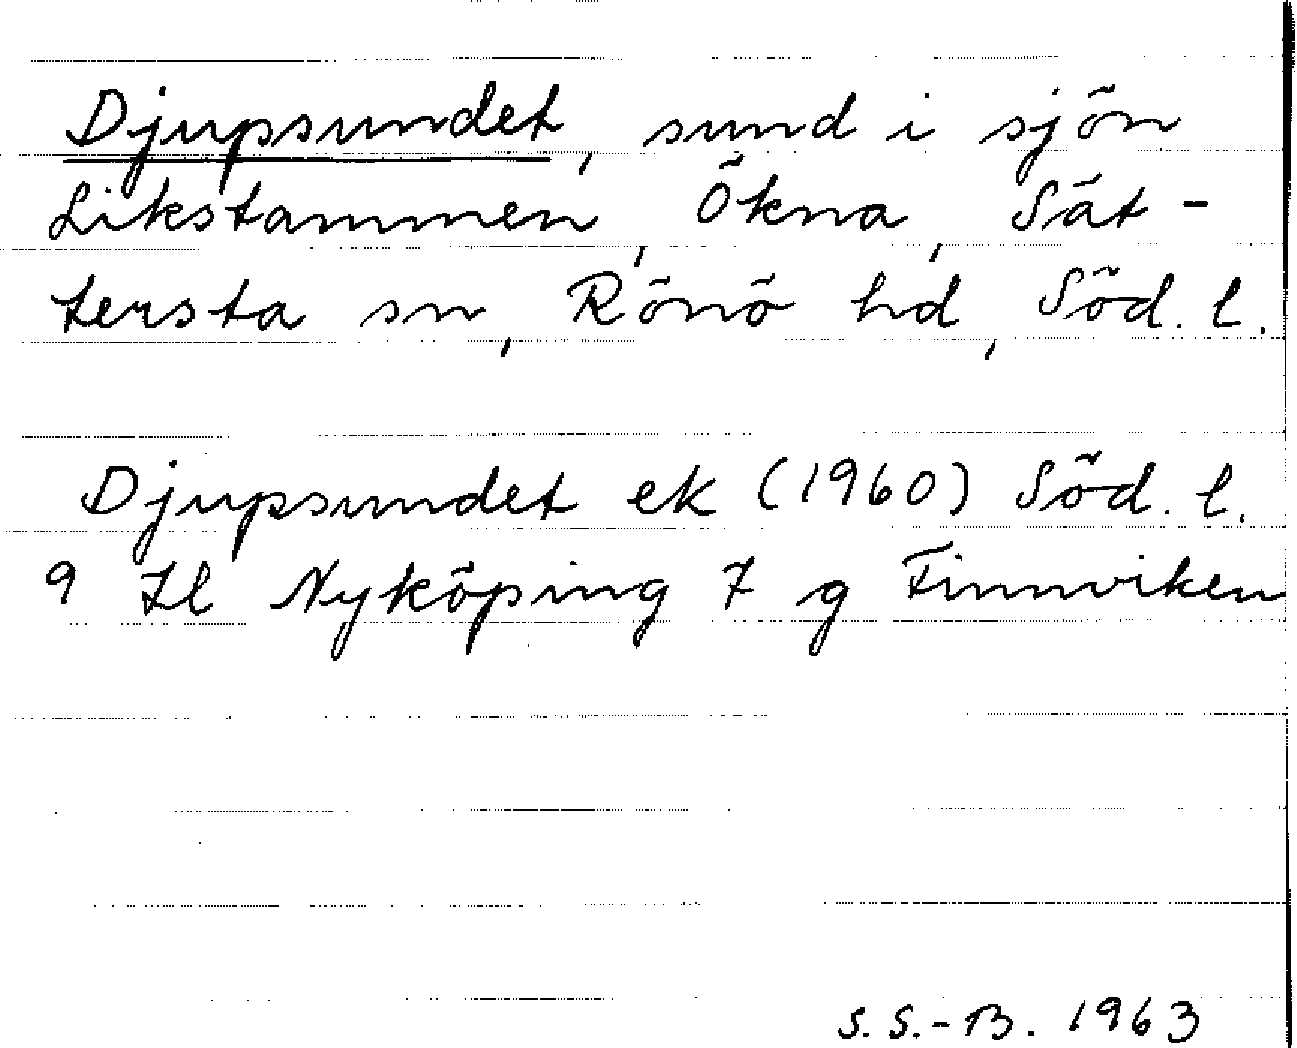 Djupsundet, sund i sjön
Likstammen, Ökna, Sät-
tersta sn, Rönö hd, Söd. l.
Djupsundet ek (1960) Söd. l.
9 Il Nyköping 7 g Finnviken
S.S.-B. 1963